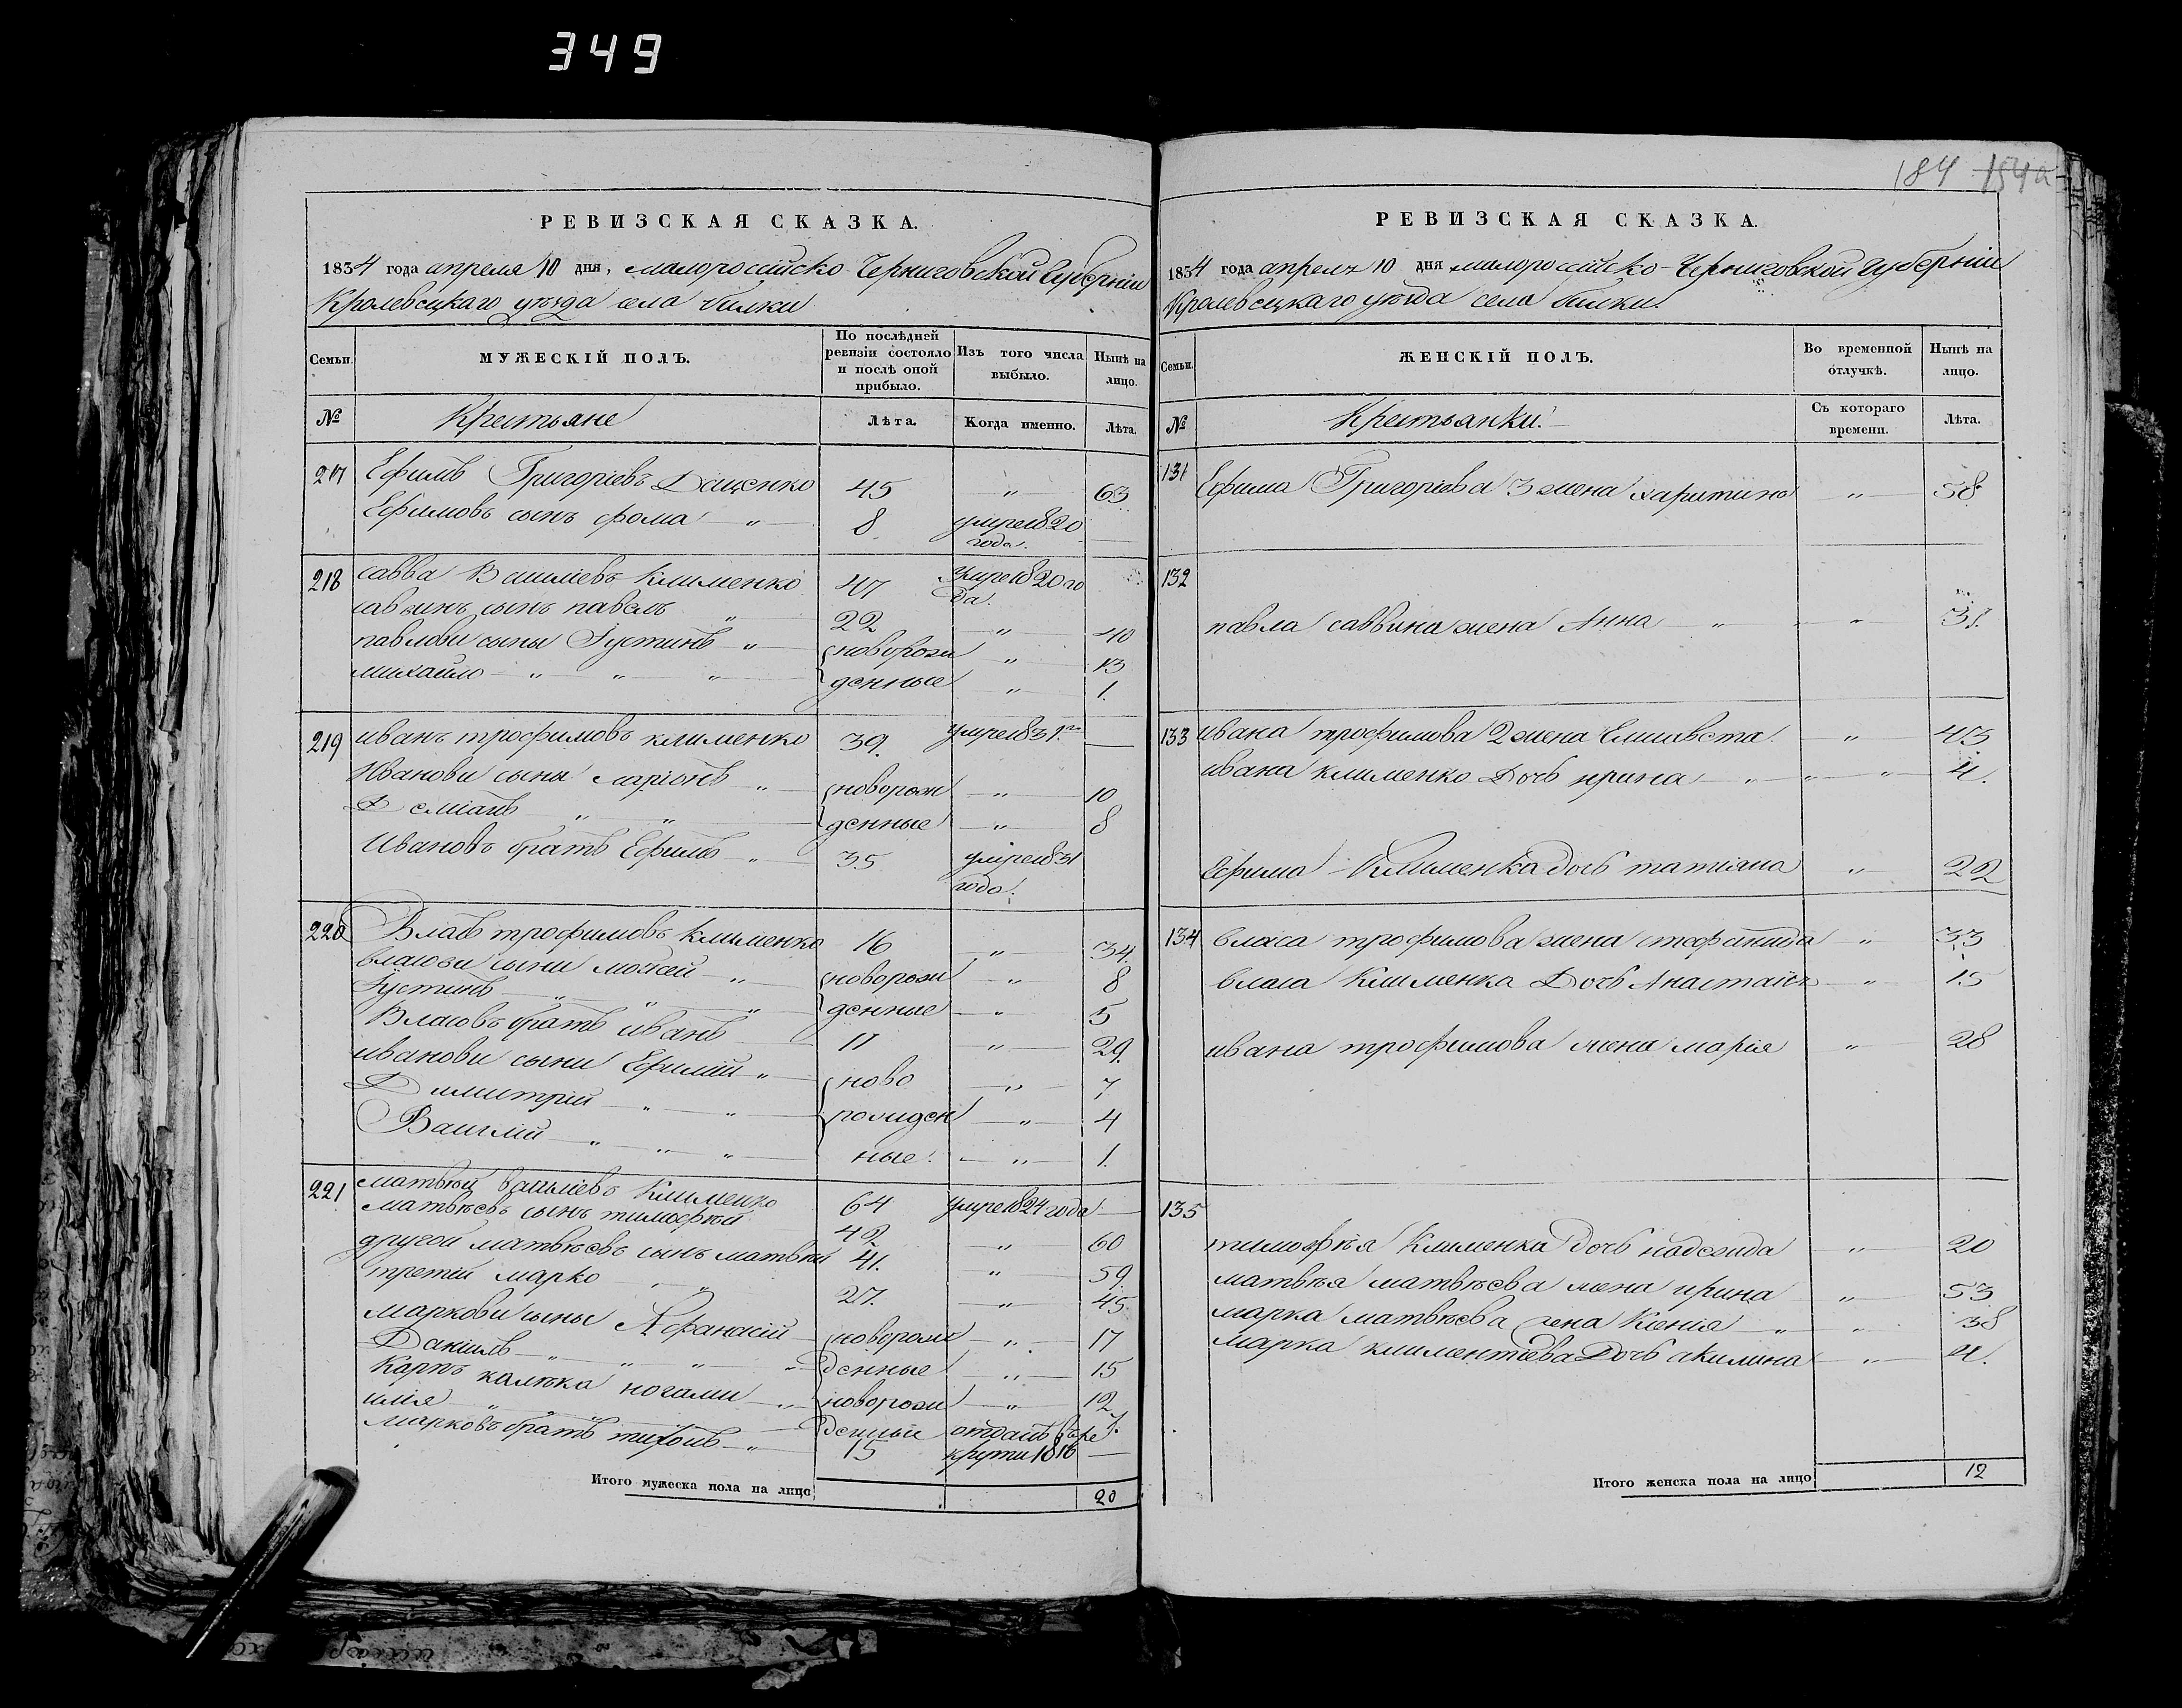 349
184 154а
РЕВИЗСКАЯ СКАЗКА.
1834 года апреля 10 дня, малороссiйско Черниговской Губернiи
Кролевецкаго уезда села билки
Семьи. МУЖЕСКІЙ ПОЛЪ. По послѣдней ревизіи состояло и послѣ оной прибыло. Изъ того числа выбыло. Нынѣ на лицо.
№ Крестьяне Лѣта. Когда именно. Лѣта.
217 Ефимъ Григорiевъ Дащенко 45 " 63
Ефимовъ сынъ фома " 8 умре 1820 года.
218 савва Васильевъ Клименко 47 умре 1820 го да.
саввинъ сынъ павелъ " 22 " 40
павлови сыны Iустинъ " новорож " 13
михайло " " " денные " 1.
219 иванъ трофимовъ клименко 39. умре 1831 г
Иванови сыны " новорож " 10
Демианъ " " денные " 8
Ивановъ братъ Ефимъ " 35 умре 1831 года.
220 Власъ трофимовъ Клименко 16 " 34.
власови сыни мойсей " новорож " 8
Iустинъ " " " денные " 5
Власовъ братъ иванъ 11 " 29.
иванови сыни Ефимiй " ново " 7
Димитрiй " " рожден " 4
Василiй " " " ные. " 1.
221 матвѣй васильевъ Клименко 64 умре 1824 года
матвѣевъ сынъ тимофѣй 42 " 60
другой матвѣевъ сынъ матвѣй 41. " 59.
третiй марко " " 27. " 45.
маркови сыны Афанасiй новорож " 17
Данiилъ " " " " денные " 15
Карпъ калѣка ногами " новорож " 12
илiя " " денные 7.
Марковъ братъ тихонъ " 15 отданъ в ре крути 1818
Итого мужеска пола на лицо 20
РЕВИЗСКАЯ СКАЗКА.
1834 года апреля 10 дня малороссiйско-Черниговской губернiи
Кролевецкаго уезда села билки.
Семьи. ЖЕНСКІЙ ПОЛЪ. Во временной отлучкѣ. Нынѣ на лицо.
№ Крестьянки. Съ котораго времени. Лѣта.
131 Ефима Григорiева 3 жена харитина " 58.
132
павла саввина жена Анна " " " 31.
133 ивана трофимова 2 жена Елисавета. " 43
ивана клименко Дочь ирина " " " 4.
Ефима Клименка дочь татiяна " 22
134 власа трофимова жена стефанида " 33
власа Клименка Дочь Анастаiя " 15
ивана трофимова жена марiя " 28
135
тимофѣя Клименка дочь надежда " 20
матвѣя матвѣева жена ирина " 53
марка матвѣева жена Ксенiя " " 38
Марка климентьева Дочь акилина " 4.
Итого женска пола на лицо 12